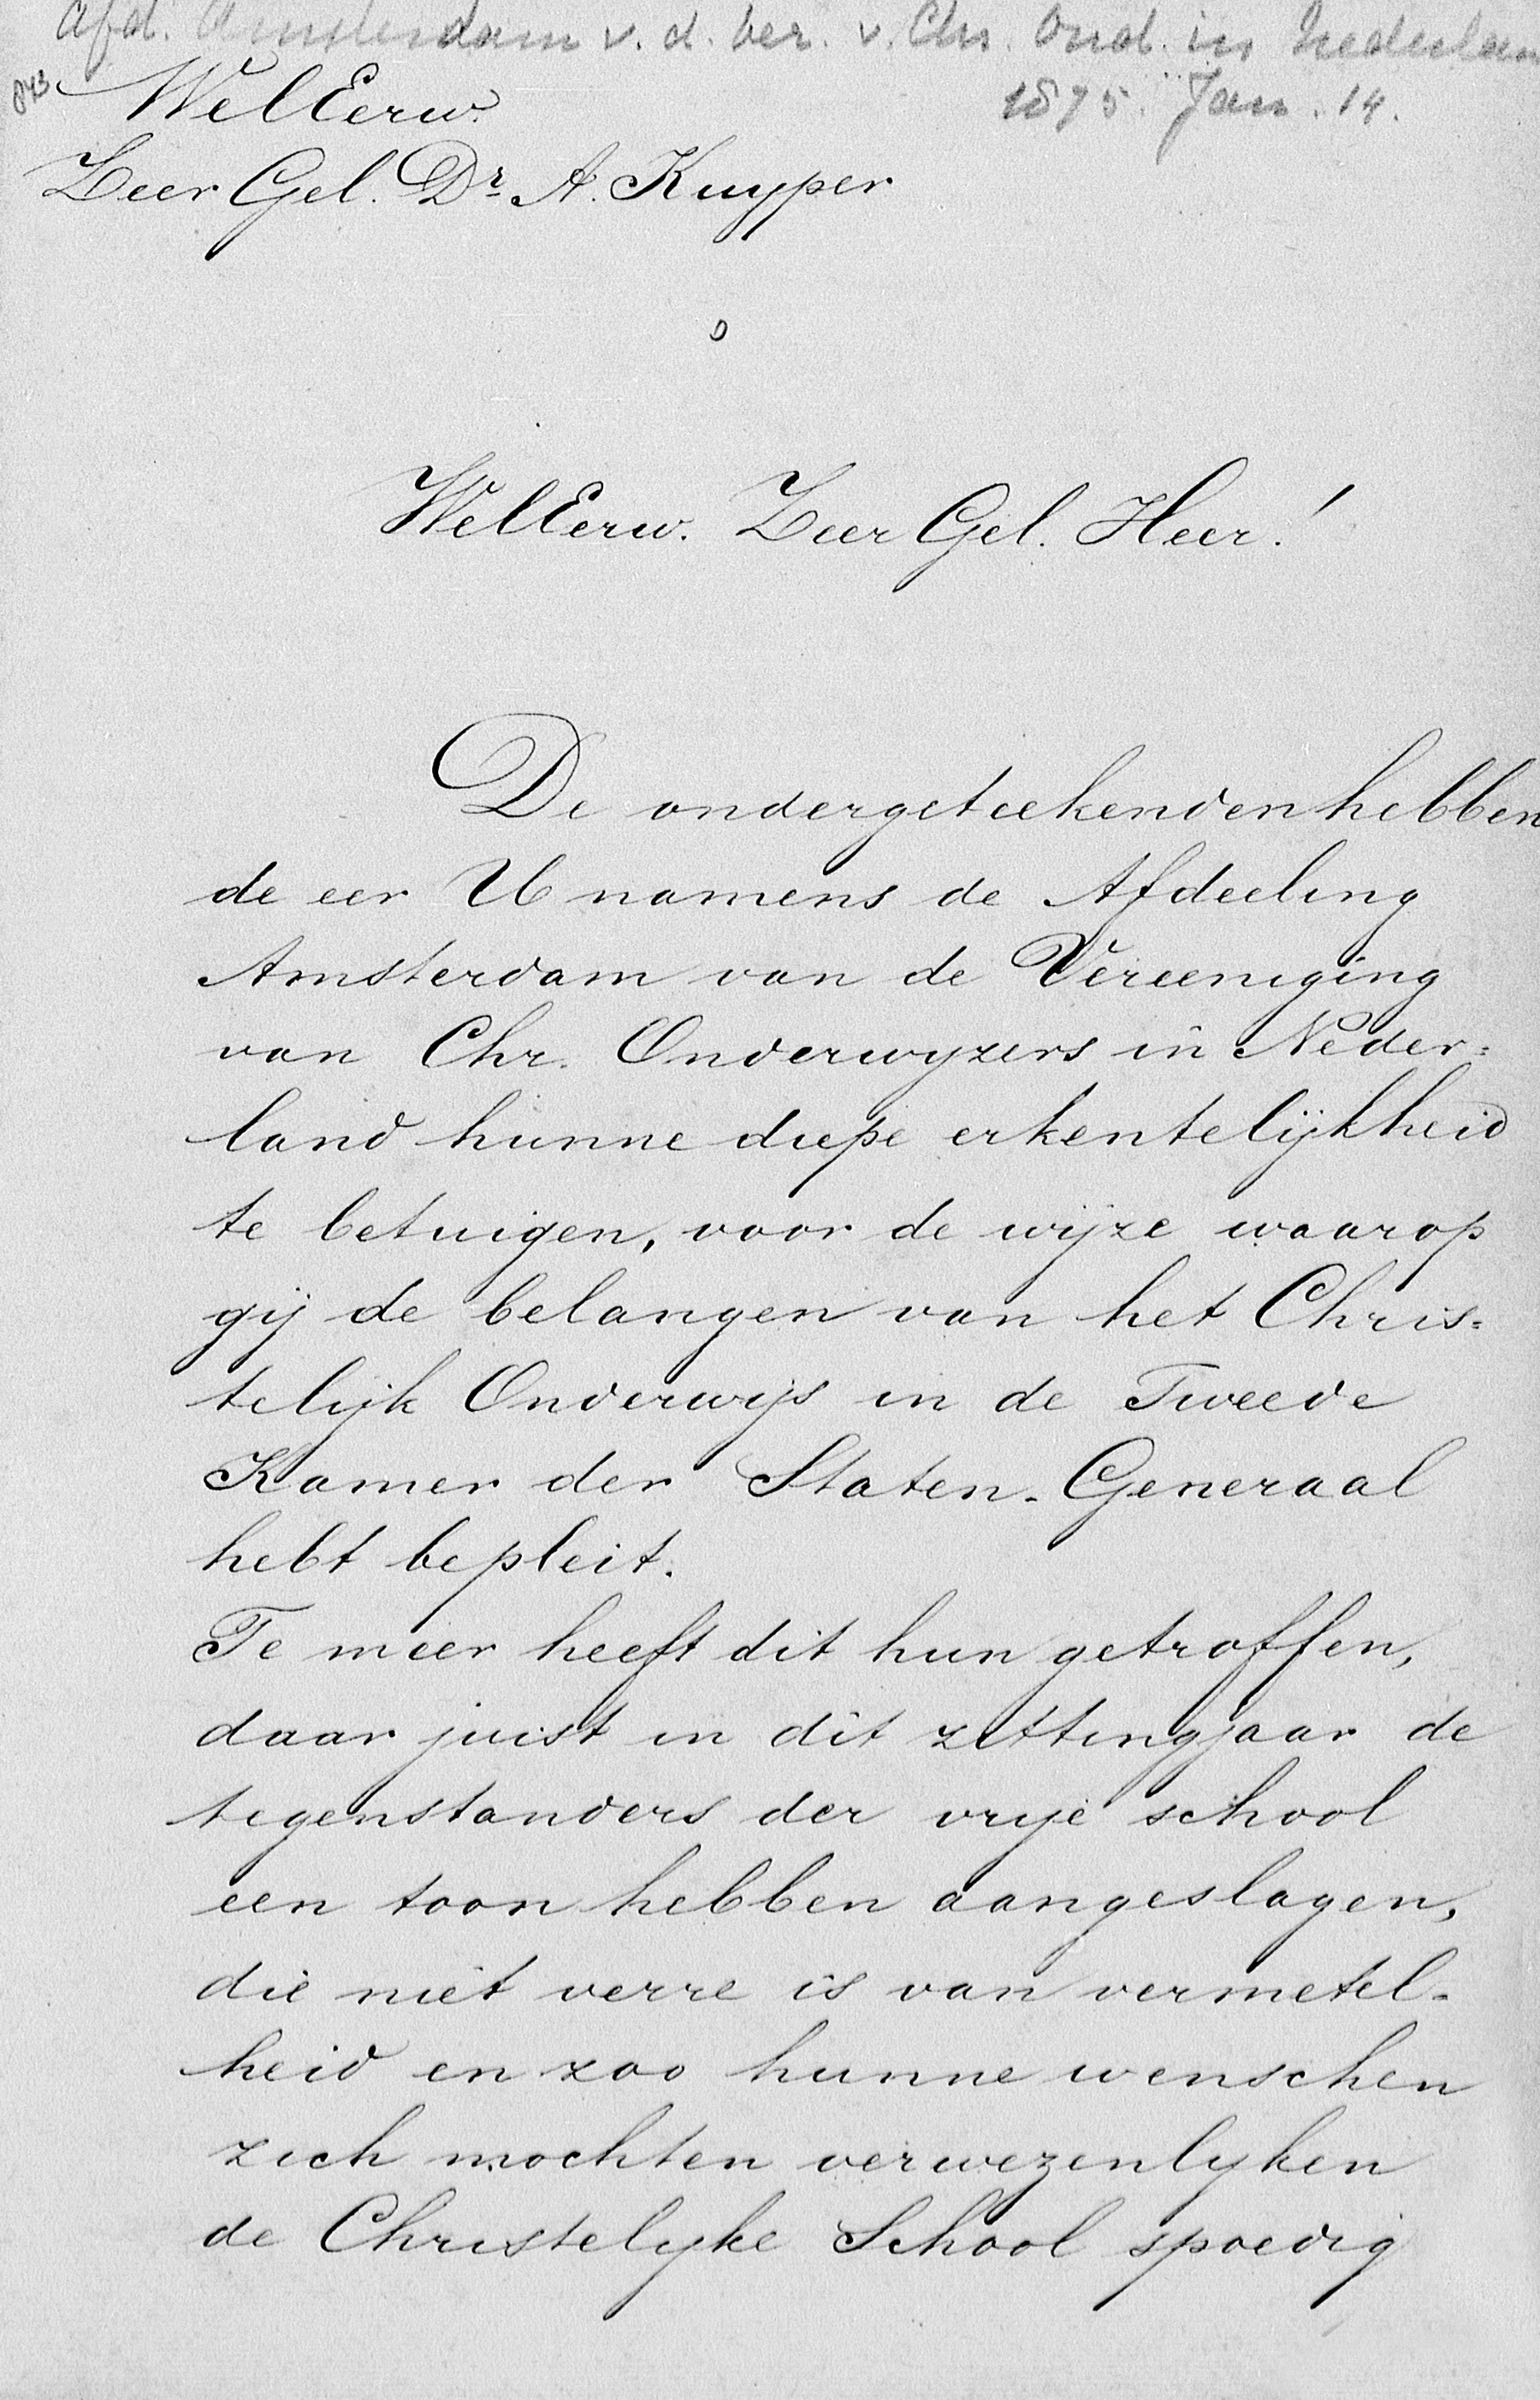 Afd. Amsterdam v. d. Ver. v. Chr. Ond. in Nederlan
1875. Jan. 14.
WelEerw.
Zeer Gel. Dr A. Kuyper
WelEerw. Zeer Gel. Heer!
De ondergeteekenden hebben
de eer U namens de Afdeeling
Amsterdam van de Vereeniging
van Chr. Onderwyzers in Neder=
land hunne diepe erkentelijkheid
te betuigen, voor de wijze waarop
gij de belangen van het Chris=
telijk Onderwijs in de Tweede
Kamer der Staten-Generaal
hebt bepleit.
Te meer heeft dit hun getroffen,
daar juist in dit zittingjaar de
tegenstanders der vrije school
een toon hebben aangeslagen,
die niet verre is van vermetel-
heid en zoo hunne wenschen
zich mochten verwezenlyken
de Christelyke School spoedig